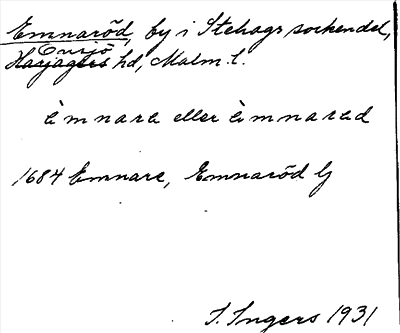 Emnaröd, by i Stehags sockendel,
Onsjö
Harjagers hd, Malm. l.
èmnara eller èmnarad
1684 Emnare, Emnaröd G
I. Ingers 1931